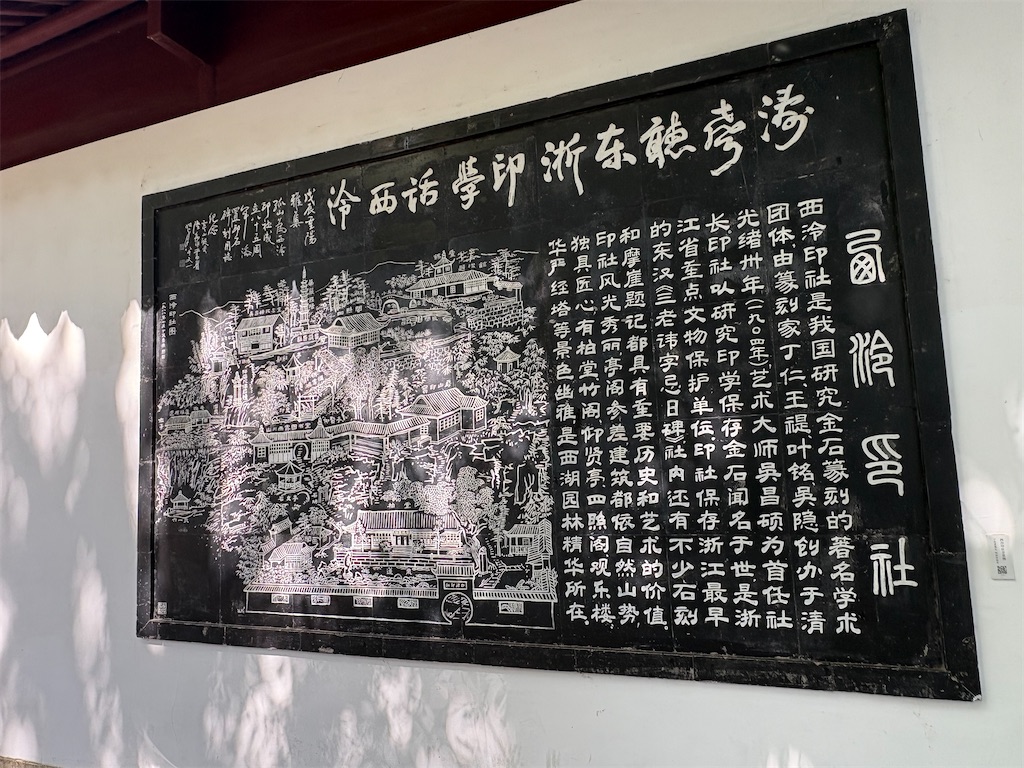 涛声聽东浙印學话西泠
西泠印社
西泠印社是我国研究金石篆刻的著名学术
团体.由篆刻家丁仁.王禔叶铭吴隐创办于清
光绪卅年(一九〇四年)艺术大师吴昌硕为首任社
长印社以研究印学保存金石闻名于世是浙
江省重点文物保护单位印社保存浙江最早
的东汉《三老讳字忌日碑》社内还有不少石刻
和摩崖题记都具有重要历史和艺术的价值.
印社风光秀丽亭阁参差建筑都依自然山势.
独具匠心.有柏堂竹阁仰贤亭四照阁观乐楼
华严经塔等景色幽雅是西湖园林精华所在.
戊辰重阳
雅集
孤山为西泠
印社成
立八十五周
纪念
西泠印社图